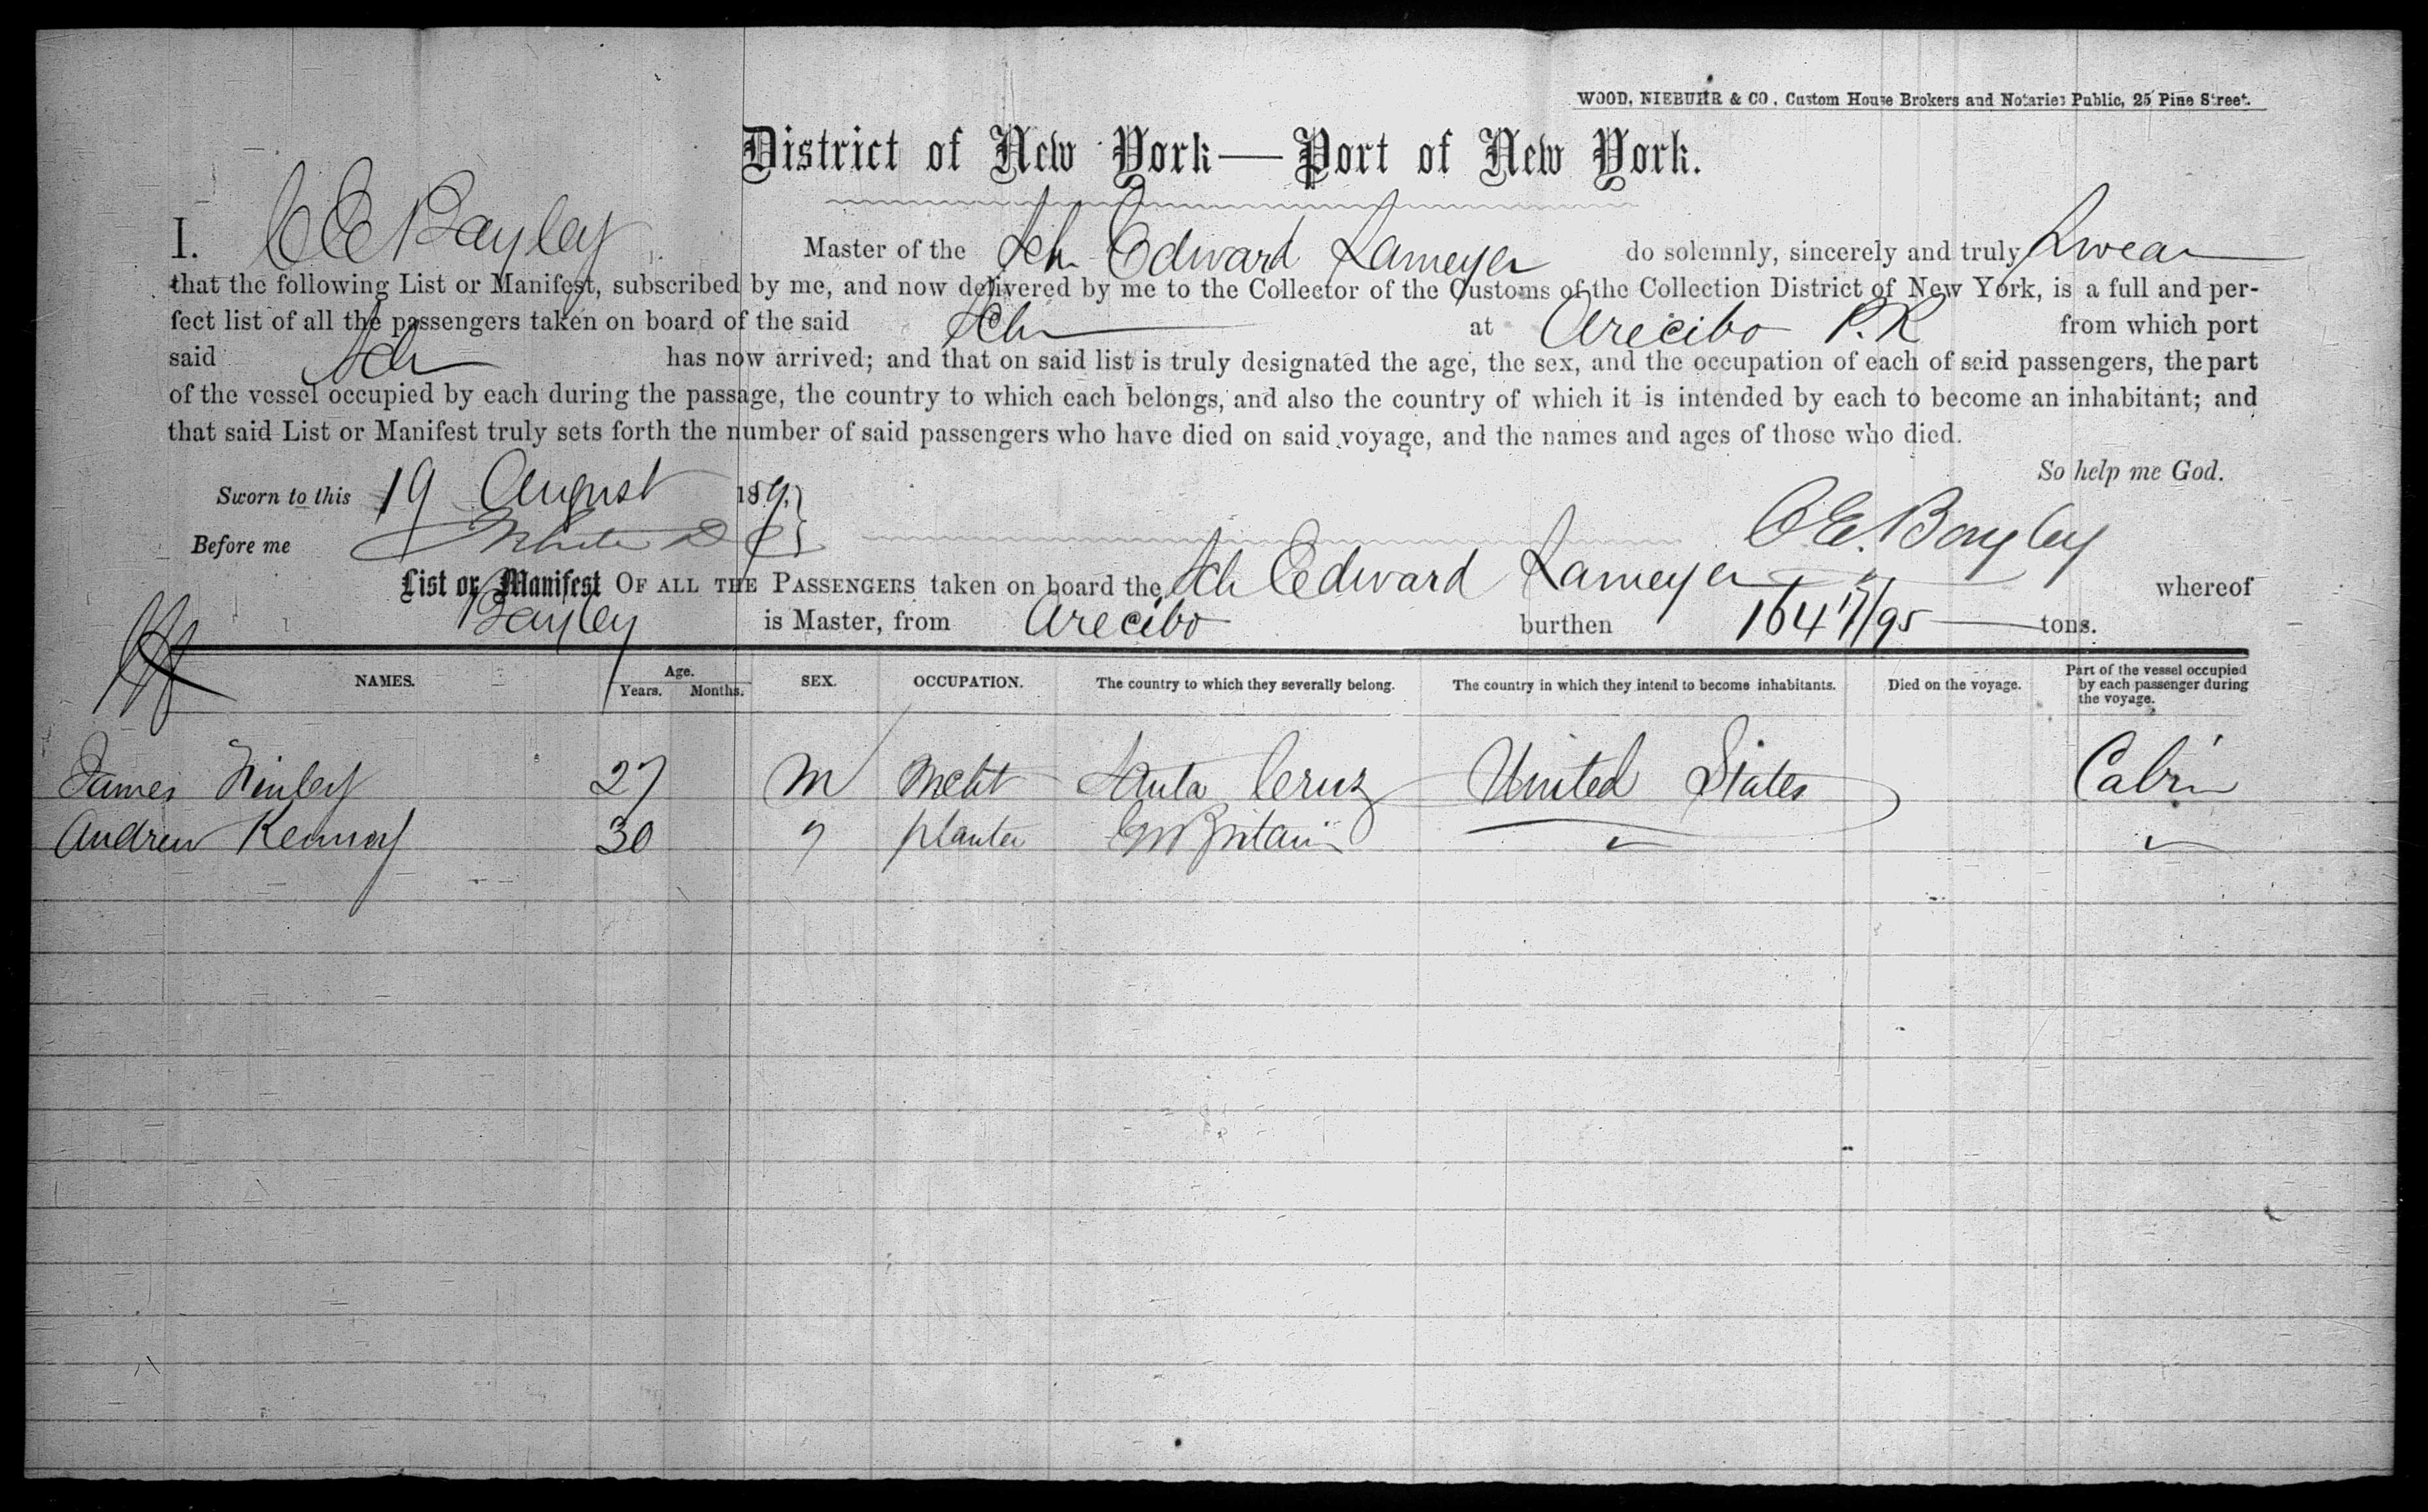 WOOD, NIEBUHR & CO., Custom House Brokers and Notaries Public, 25 Pine Street.
District of New York—Port of New York.
I. C E Bayley Master of the Sch Edward Lameyer do solemnly, sincerely and truly Swear
that the following List or Manifest, subscribed by me, and now delivered by me to the Collector of the Customs of the Collection District of New York, is a full and per-
fect list of all the passengers taken on board of the said Sch at Arecibo P.R from which port
said Sch has now arrived; and that on said list is truly designated the age, the sex, and the occupation of each of said passengers, the part
of the vessel occupied by each during the passage, the country to which each belongs, and also the country of which it is intended by each to become an inhabitant; and
that said List or Manifest truly sets forth the number of said passengers who have died on said voyage, and the names and ages of those who died.
So help me God.
Sworn to this 19 August 18
Before me C E. Bayley
List or Manifest OF ALL THE PASSENGERS taken on board the Sch Edward Lameyer whereof
Bayley is Master, from Arecibo burthen 164 /95 tons.
NAMES. Age. Years. Months. SEX. OCCUPATION. The country to which they severally belong. The country in which they intend to become inhabitants. Died on the voyage. Part of the vessel occupied by each passenger during the voyage.
James 27 M Mcht Santa Cruz United States Cabin
Andrew 30 " planter Gt Britain " "